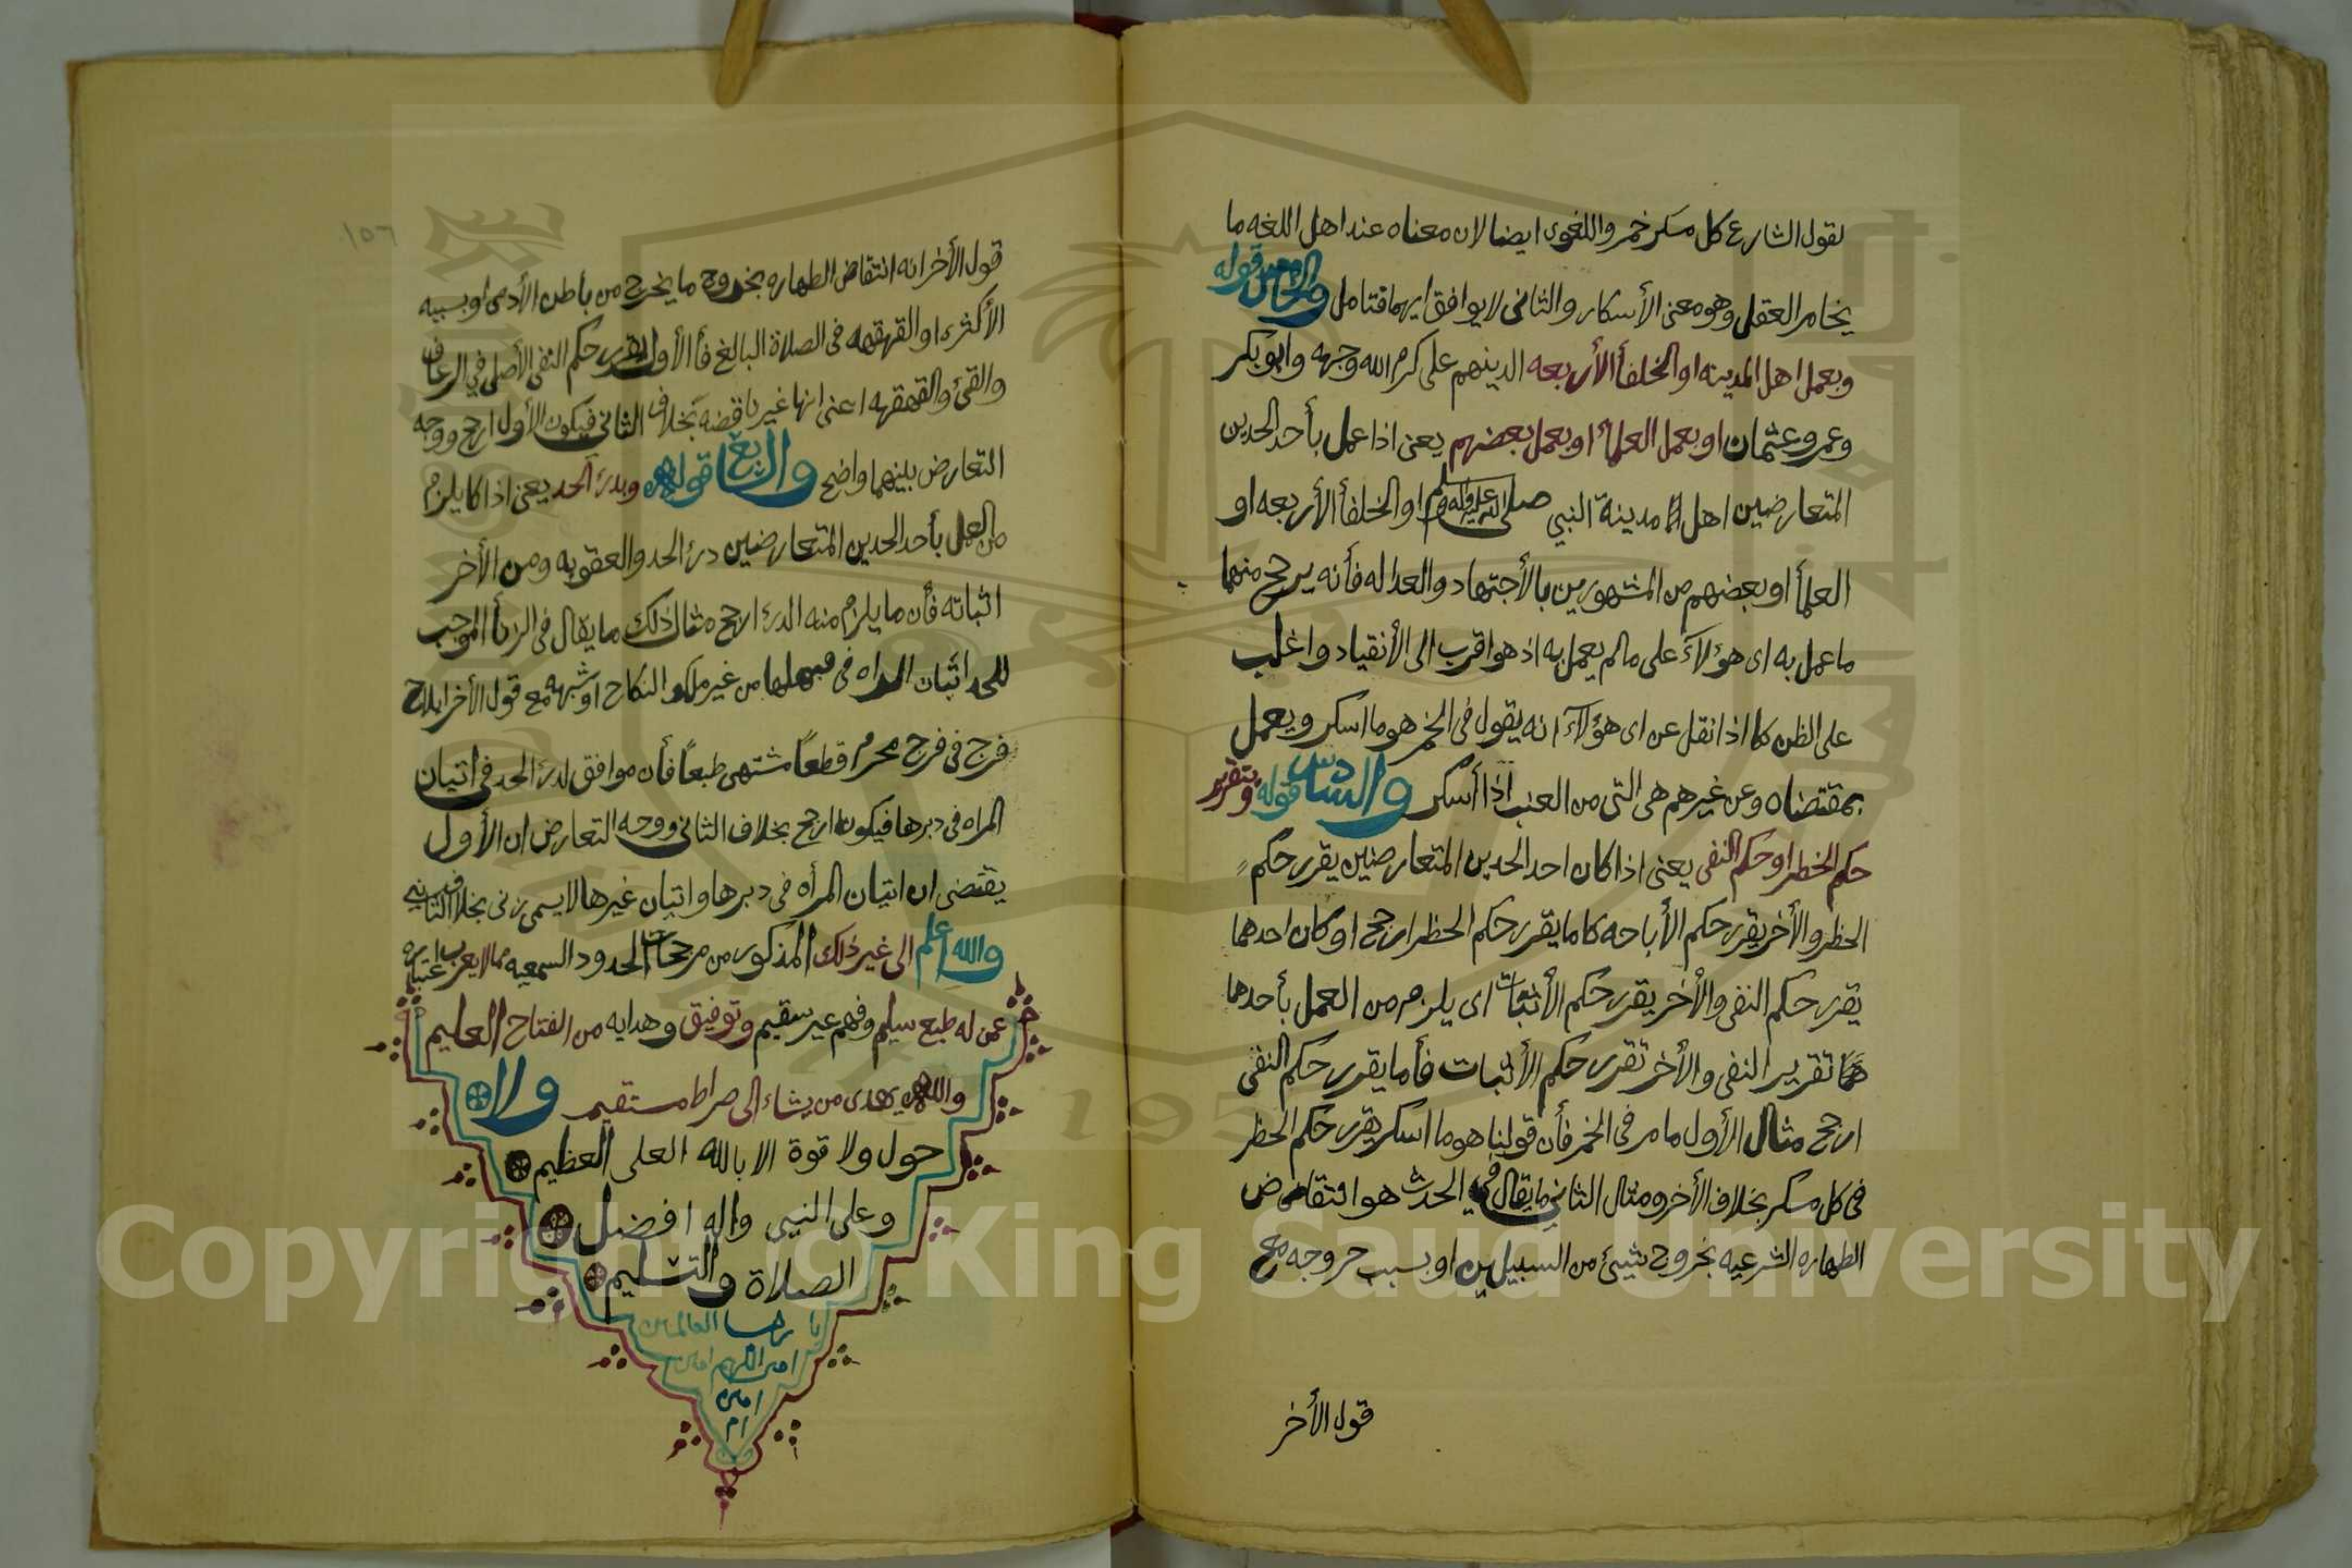 لقول الشارع كل مسكر خمر واللغوى ايضا لان معناه عند اهل اللغه ما
يخامر العقل وهو معنى الأسكار والثانى لايوافق ايهما فتامل والخامس قوله
وبعمل اهل المدينه او الخلفأ الأربعه الذينهم على كرم الله وجهه وابوبكر
وعمر وعثمان او بعمل العلمأ او بعمل بعضهم يعنى اذا عمل بأحد الحدين
المتعارضين اهل مدينة النبي صلى الله عليه واله وسلم او الخلفأ الأربعه او
العلمأ او بعضهم من المشهورين بالأجتهاد والعداله فأنه يرجح منهما
ما عمل به اى هؤلآء على مالم يعمل به اذ هو اقرب الى الأنقياد واغلب
على الظن كما اذا نقل عن اى هؤلآء انه يقول فى الخمر هو ما اسكر ويعمل
بمقتضاه وعن غيرهم هى التى من العنب اذا أسكر والسادس قوله وبتقرير
حكم الحظر او حكم النفى يعنى اذا كان احد الحدين المتعارضين يقرر حكم
الحظر والأخر يقرر حكم الأباحه كاما يقرر حكم الحظر ارجح او كان احدهما
يقرر حكم النفى والأخر يقرر حكم الأثبات اى يلزم من العمل بأحدهما
تقرير النفى والأخر تقرر حكم الأثبات فأما يقرر حكم النفى
ارجح مثال الأول ما مر فى الخمر فأن قولنا هو ما اسكر يقرر حكم الحظر
فى كل مسكر بخلاف الأخر ومثال الثاني ما يقال في الحدث هو انتقاض
الطهاره الشرعيه بخروج شيئ من السبيلين او بسبب خروجه مع
قول الأخر
١٥٦
قول الأخر انه انتقاض الطهاره بخروج ما يخرج من بأطن الأدمى او بسببه
الأكثر او القهقهه فى الصلاة البالغ فأ الأول يقرر حكم النفى الأصلي في الرعاف
والقئ والقهقهه اعنى انها غير ناقضه بخلاف الثاني فيكون الأول ارجح ووجه
التعارض بينهما واضح والسابع قوله وبدرئ الحد يعنى اذا كا يلزم
من العمل بأحد الحدين المتعارضين درئ الحد والعقوبه ومن الأخر
اثباته فأن ما يلزم منه الدرء ارجح مثال ذلك ما يقال فى الزنأ الموجب
للحد اتيان المراه فى من غير ملك النكاح او شبهه مع قول الأخر ايلاج
فرج فى فرج محرم قطعاً مشتهى طبعاً فأن موافق لدرئ الحد في اتيان
المراه فى دبرها فيكون ارجح بخلاف الثانى ووجه التعارض ان الأول
يقتضى ان اتيان المرأه فى دبرها واتيان غيرها لا يسمى زنى بخلاف الثاني
والله اعلم الى غير ذلك المذكور من مرجحات الحدود السمعيه مما لا يعزب اعتباره
عمن له طبع سليم وفهم غير سقيم وتوفيق وهدايه من الفتاح العليم
والله يهدى من يشاء الى صراط مستقيم ولا
حول ولا قوة الا بالله العلى العظيم
وعلى النبى واله افضل
الصلاة والتسليم
يا رب العالمين
امين اللهم امين
امين
ام
Copyright © King Saud University
195